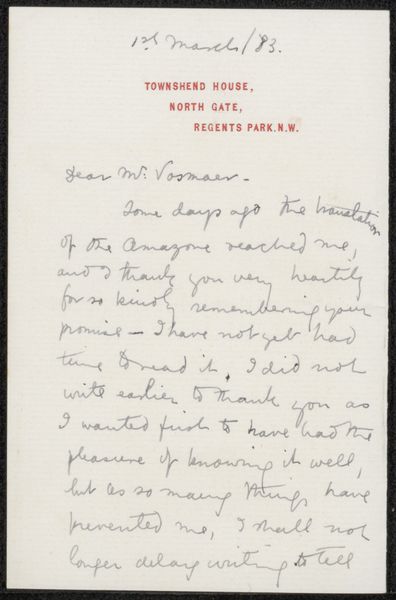 1st March/83.
TOWNSHEND HOUSE,
NORTH GATE,
REGENTS PARK.N.W.
Dear Mr. Vosmaer -
Some days ago the translation
of the Amazone reached me,
and I thank you very heartily
for so kindly remembering your
promise - I have not yet had
time to read it. I did not
write earlier to thank you as
I wanted first to have had the
pleasure of knowing it well,
but as so many things have
prevented me, I shall not
longer delay writing to tell